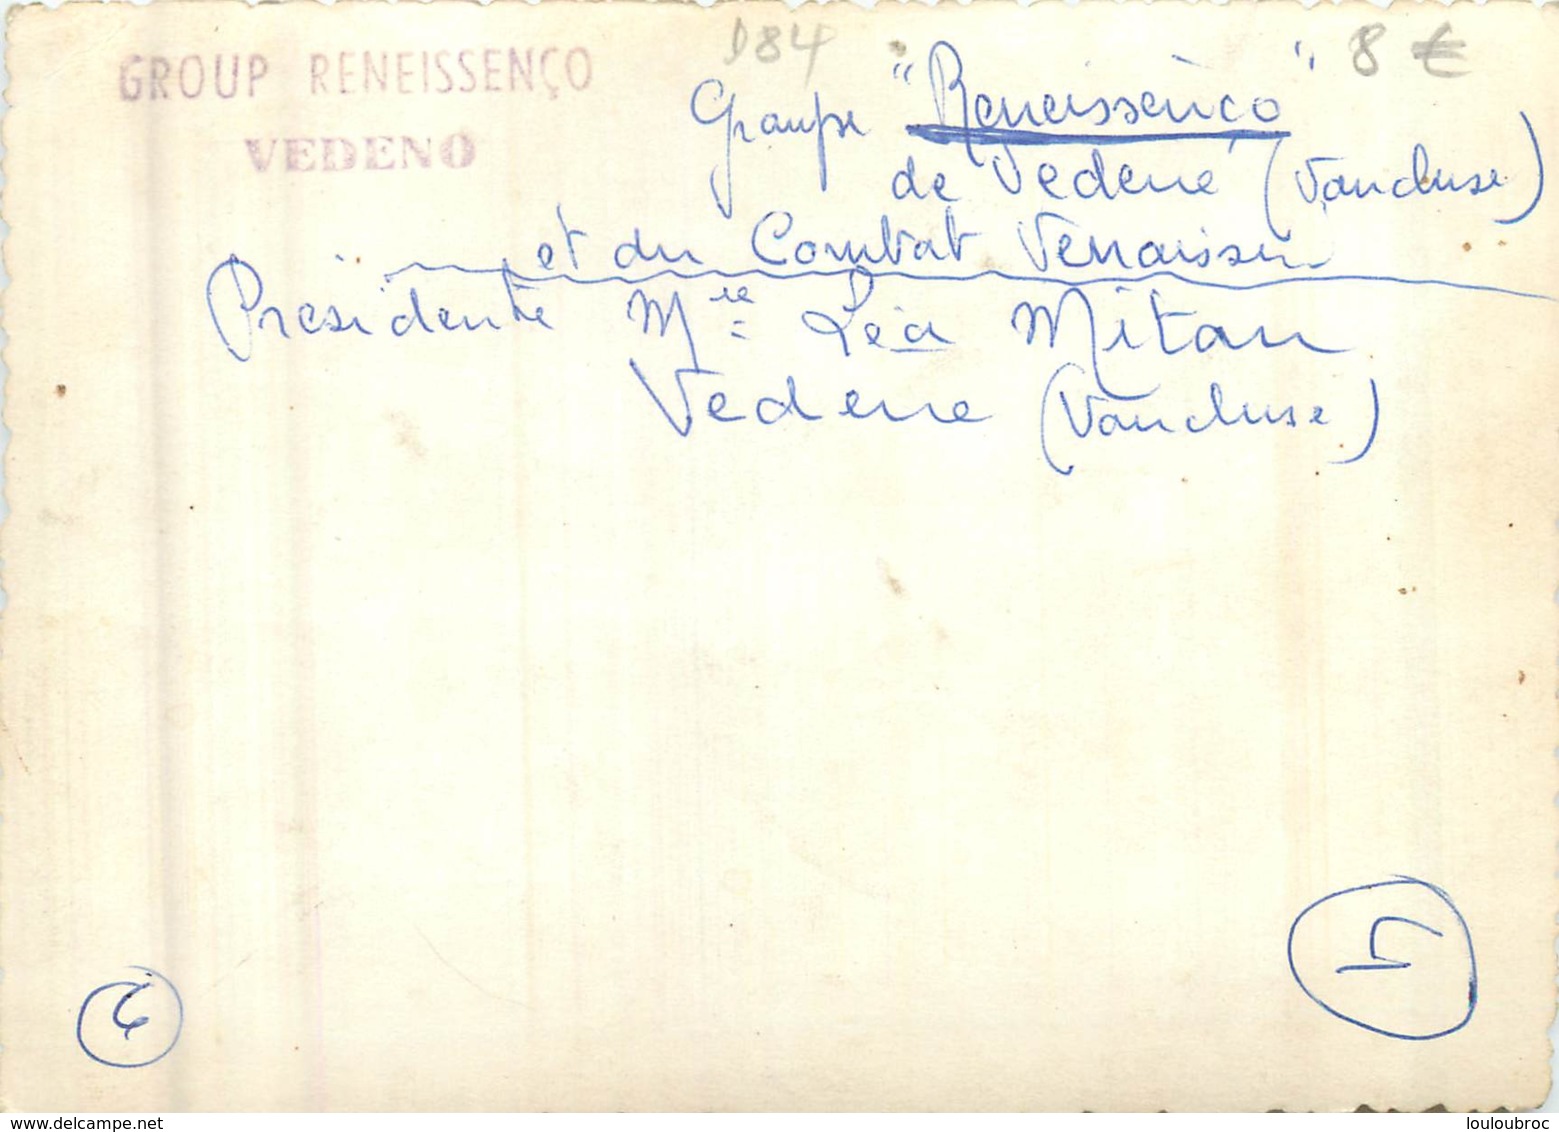 GROUP RENEISSENÇO
VEDENO
D84
8 €
Groupe "Reneissènço"
de Vedène (Vaucluse)
et du Comtat Venaissin
Présidente Mlle Léa Mitan
Vedène (Vaucluse)
delcampe.net
louloubroc